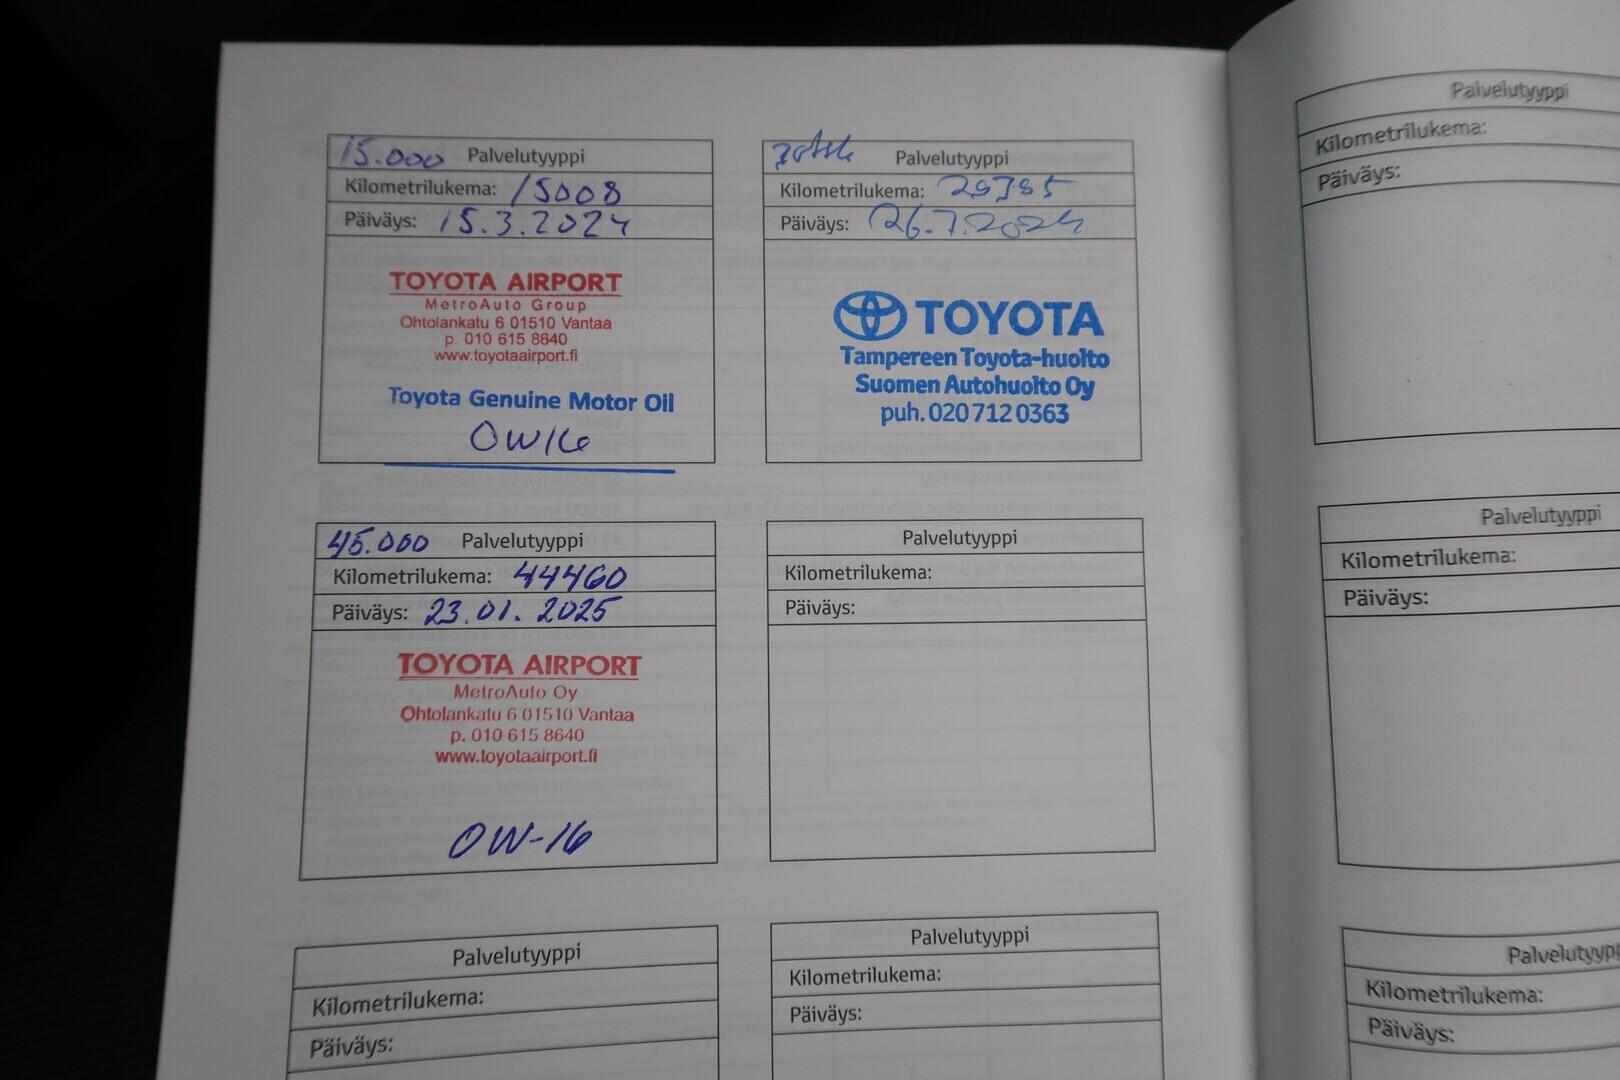 15.000 Palvelutyyppi
Kilometrilukema: 15008
Päiväys: 15.3.2024
TOYOTA AIRPORT
MetroAuto Group
Ohtolankatu 6 01510 Vantaa
p. 010 615 8640
www.toyotaairport.fi
Toyota Genuine Motor Oil
0W16
Palvelutyyppi
Kilometrilukema: 29385
Päiväys: 26.7.2024
TOYOTA
Tampereen Toyota-huolto
Suomen Autohuolto Oy
puh. 020 712 0363
45.000 Palvelutyyppi
Kilometrilukema: 44460
Päiväys: 23.01.2025
TOYOTA AIRPORT
MetroAuto Oy
Ohtolankatu 6 01510 Vantaa
p. 010 615 8640
www.toyotaairport.fi
0W-16
Palvelutyyppi
Kilometrilukema:
Päiväys:
Palvelutyyppi
Kilometrilukema:
Päiväys:
Palvelutyyppi
Kilometrilukema:
Päiväys:
Palvelutyyppi
Kilometrilukema:
Päiväys:
Palvelutyyppi
Kilometrilukema:
Päiväys:
Palvelutyypp
Kilometrilukema:
Päiväys: